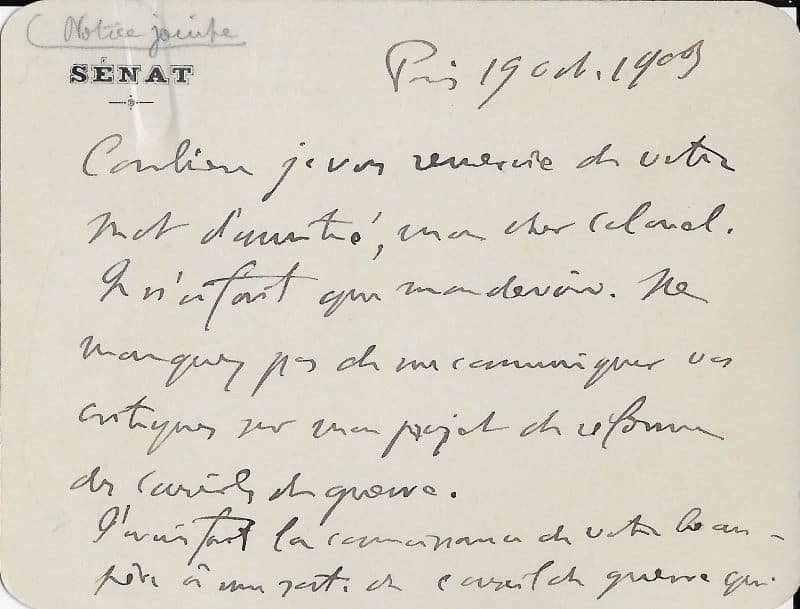 (Notice jointe
SÉNAT
Paris 19 oct. 1903
Combien je vous remercie de votre
mot d'amitié, mon cher Colonel.
Je n'ai fait que mon devoir. Ne
manquez pas de me communiquer vos
critiques sur mon projet de réforme
des conseils de guerre.
J'avais fait la connaissance de votre beau-
père à une sorte de conseil de guerre qui